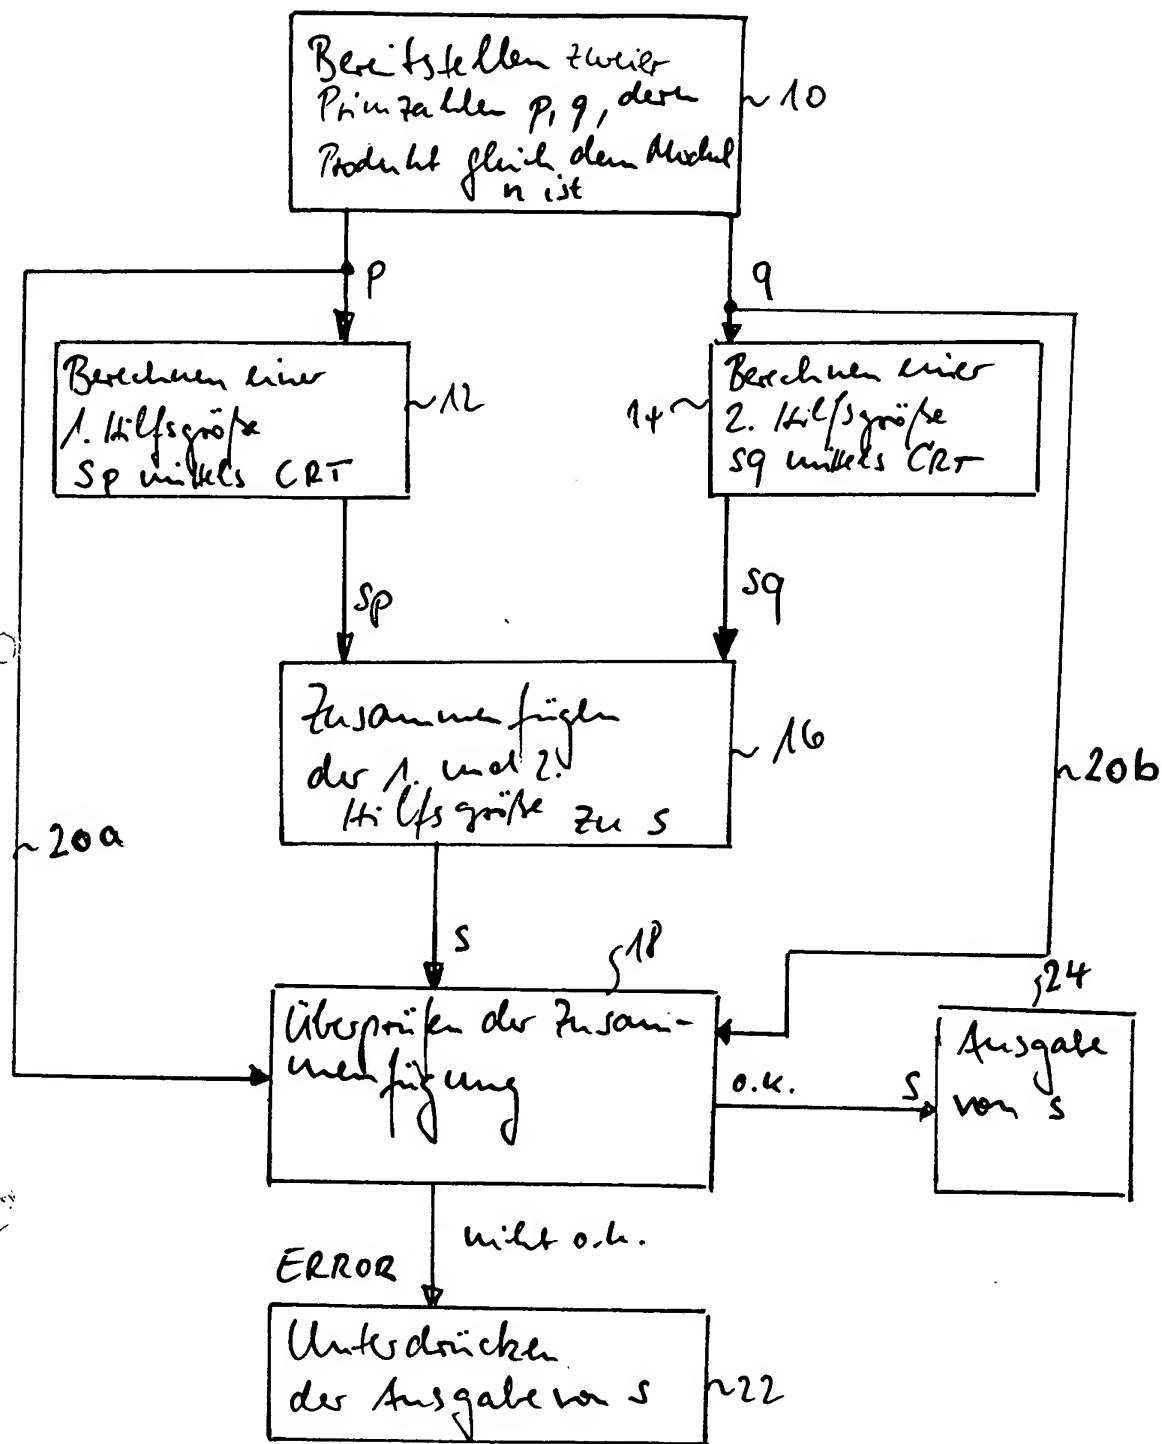 Bereitstellen zweier
Primzahlen p, q, deren
Produkt gleich dem Modul
n ist
~10
p
q
Berechnen einer
1. Hilfsgröße
sp mittels CRT
~12
14~
Berechnen einer
2. Hilfsgröße
sq mittels CRT
sp
sq
Zusammenfügen
der 1. und 2.
Hilfsgröße zu s
~16
~20a
~20b
s
18
Überprüfen der Zusam-
menfügung
24
Ausgabe
von s
o.k.
s
nicht o.k.
ERROR
Unterdrücken
der Ausgabe von s
~22